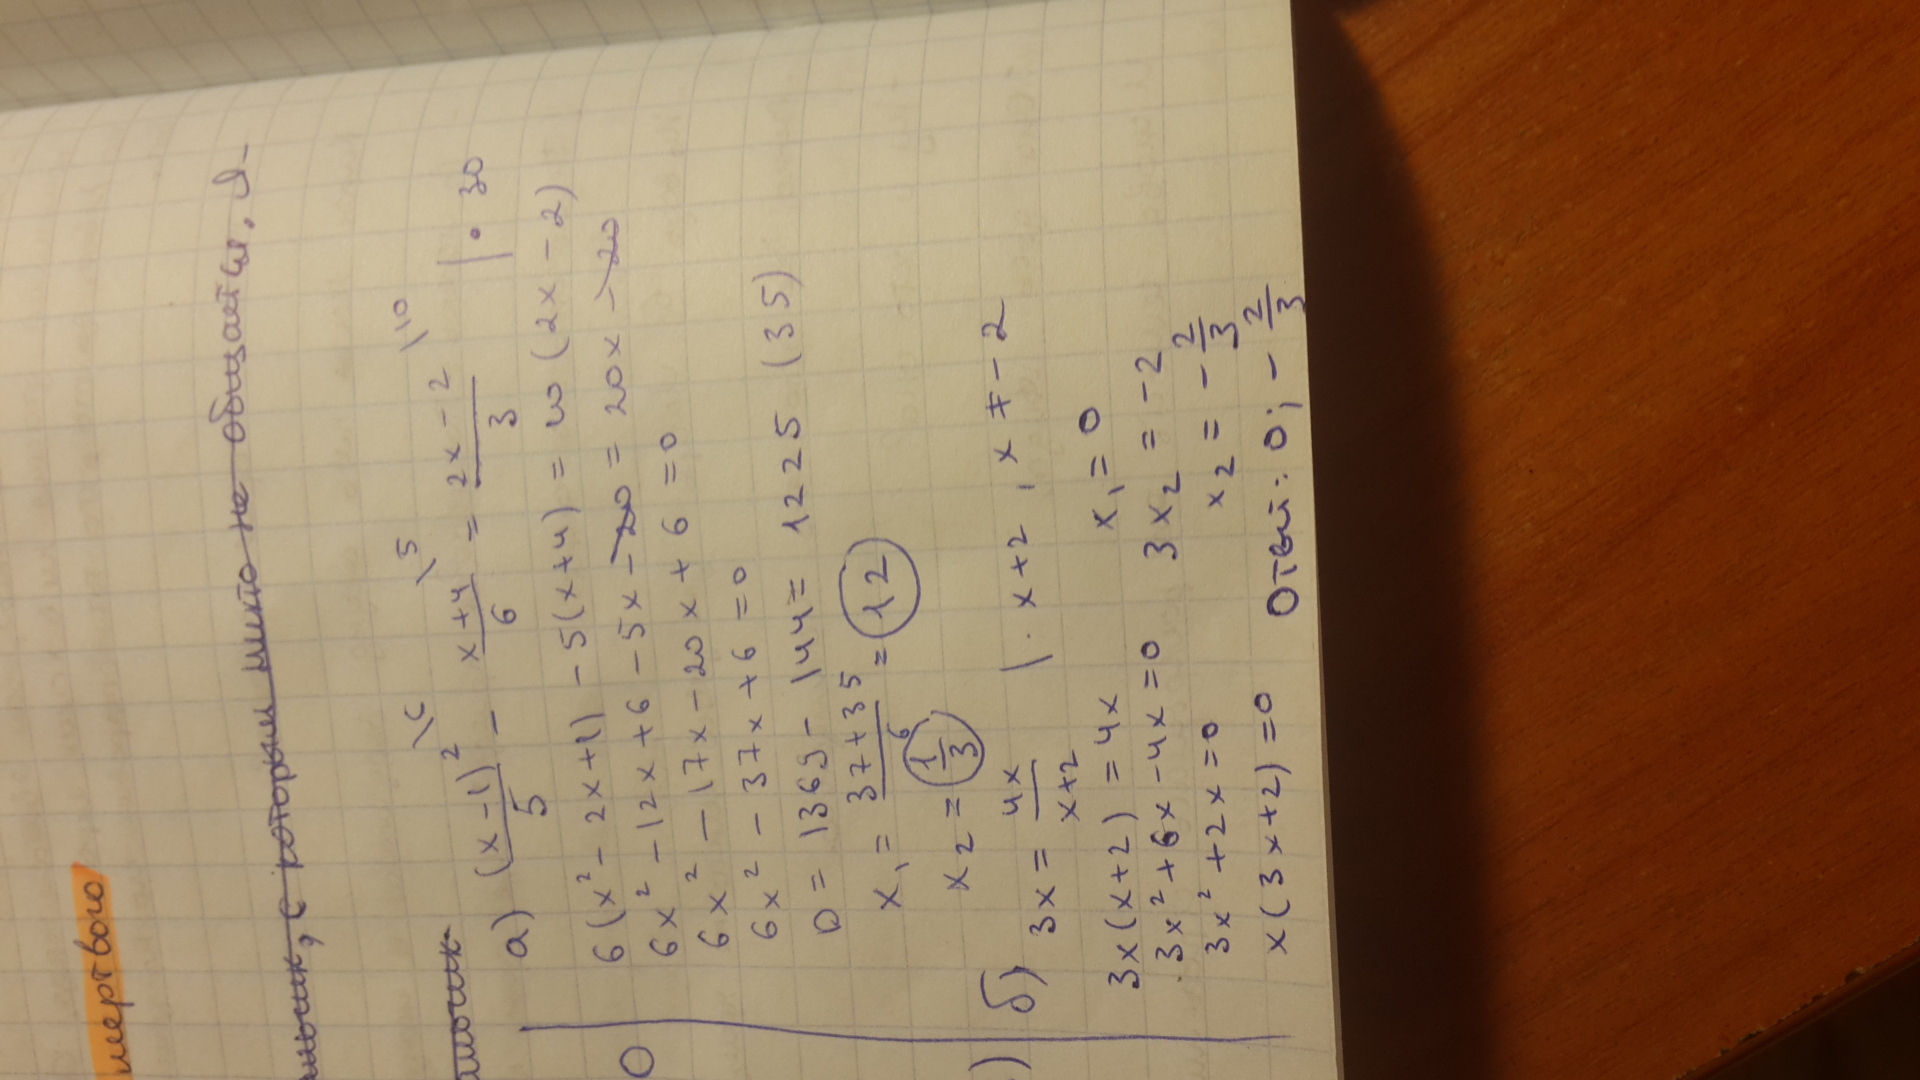 мертвого
с которым никто не общается. Я-
а) (x-1)²/5 \6 - x+4/6 \5 = 2x-2/3 \10 | · 30
6(x²-2x+1) - 5(x+4) = 10(2x-2)
6x² - 12x + 6 - 5x - 20 = 20x - 20
6x² - 17x - 20x + 6 = 0
6x² - 37x + 6 = 0
D = 1369 - 144 = 1225 (35)
x₁ = 37+35/6 = 12
x₂ = 1/3
0
б) 3x = 4x/x+2 | · x+2, x ≠ -2
3x(x+2) = 4x
3x² + 6x - 4x = 0
3x² + 2x = 0
x(3x+2) = 0
x₁ = 0
3x₂ = -2
x₂ = -2/3
Ответ: 0; -2/3
)